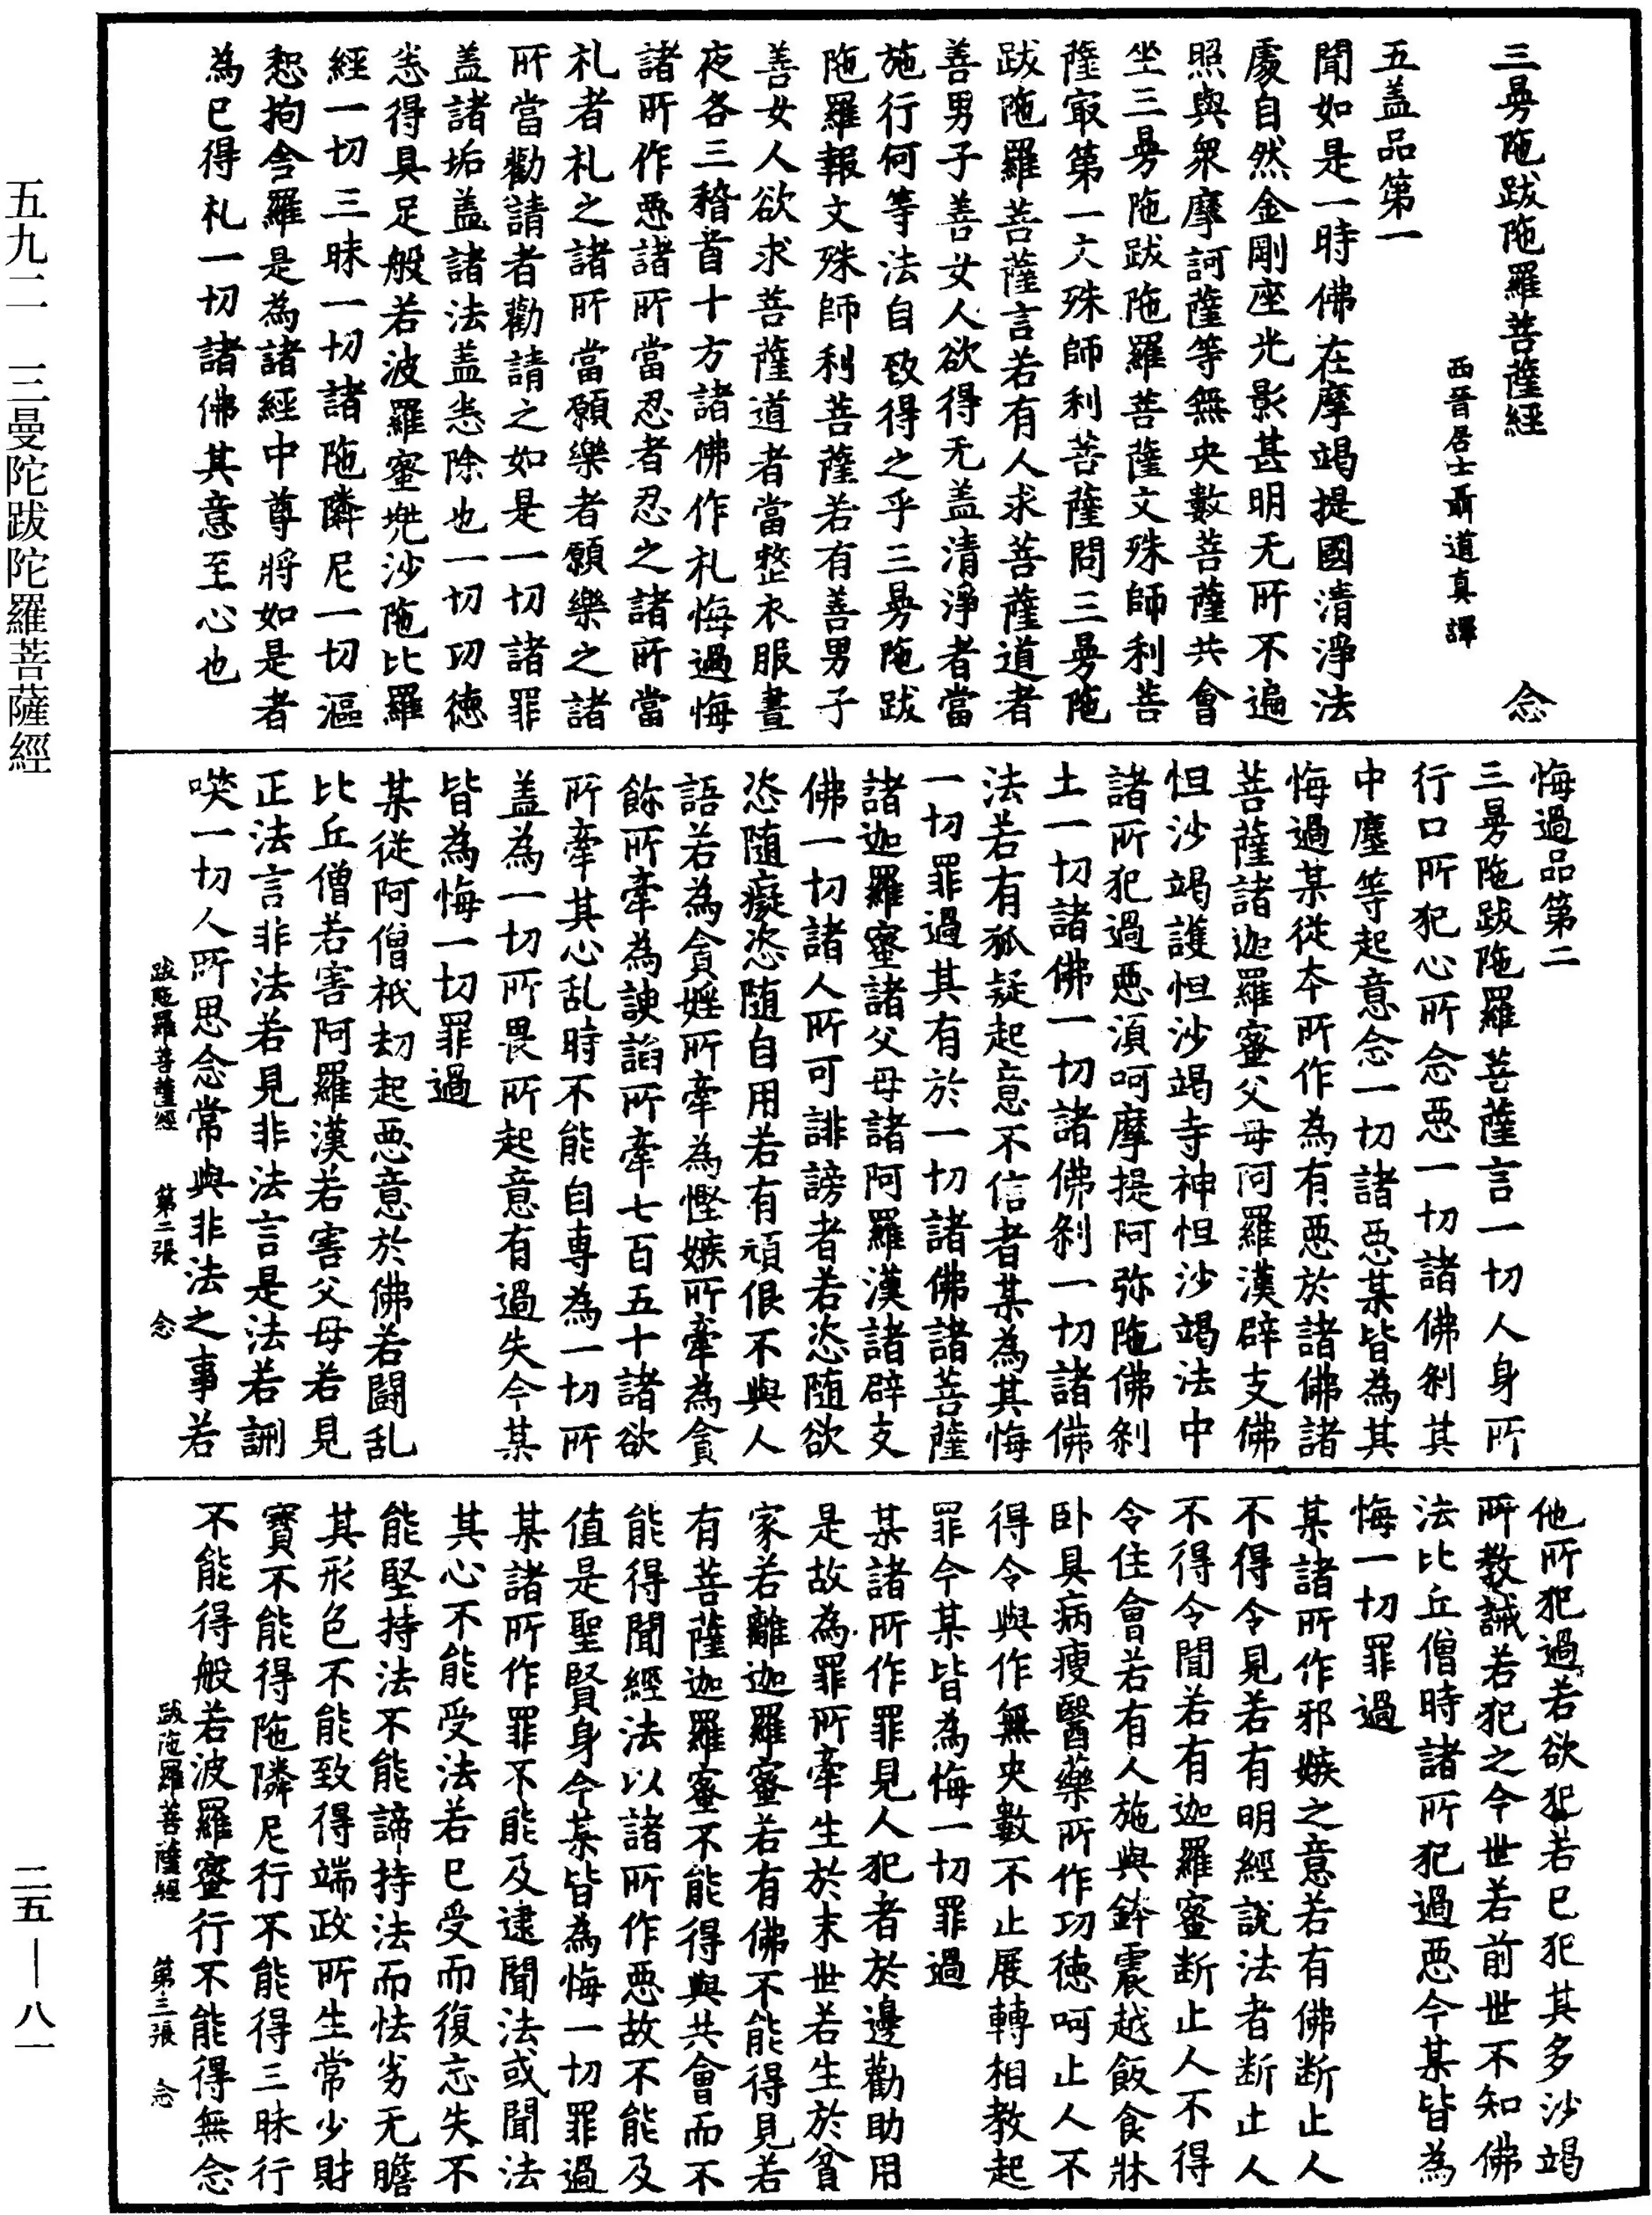 三曼陁跋陁羅菩薩經 念
西晉居士聶道真譯
五盖品第一
聞如是一時佛在摩竭提國清淨法
處自然金剛座光影甚明无所不遍
照與衆摩訶薩等無央數菩薩共會
坐三曼陁跋陁羅菩薩文殊師利菩
薩㝡第一文殊師利菩薩問三曼陁
跋陁羅菩薩言若有人求菩薩道者
善男子善女人欲得无盖清淨者當
施行何等法自致得之乎三曼陁跋
陁羅報文殊師利菩薩若有善男子
善女人欲求菩薩道者當整衣服晝
夜各三稽首十方諸佛作礼悔過悔
諸所作惡諸所當忍者忍之諸所當
礼者礼之諸所當願樂者願樂之諸
所當勸請者勸請之如是一切諸罪
盖諸垢盖諸法盖悉除也一切功德
悉得具足般若波羅蜜兠沙陁比羅
經一切三昧一切諸陁隣尼一切漚
惒拘舎羅是為諸經中尊將如是者
為已得礼一切諸佛其意至心也
悔過品第二
三曼陁跋陁羅菩薩言一切人身所
行口所犯心所念惡一切諸佛刹其
中塵等起意念一切諸惡某皆為其
悔過某從本所作為有惡於諸佛諸
菩薩諸迦羅蜜父母阿羅漢辟支佛
怛沙竭護怛沙竭寺神怛沙竭法中
諸所犯過惡須呵摩提阿弥陁佛刹
土一切諸佛一切諸佛刹一切諸佛
法若有狐疑起意不信者某為其悔
一切罪過其有於一切諸佛諸菩薩
諸迦羅蜜諸父母諸阿羅漢諸辟支
佛一切諸人所可誹謗者若恣随欲
恣随癡恣随自用若有頑佷不與人
語若為貪婬所牽為慳嫉所牽為貪
餘所牽為諛諂所牽七百五十諸欲
所牽其心乱時不能自専為一切所
盖為一切所畏所起意有過失今某
皆為悔一切罪過
某從阿僧祇刧起惡意於佛若鬪乱
比丘僧若害阿羅漢若害父母若見
正法言非法若見非法言是法若誷
㗛一切人所思念常與非法之事若
跋陁羅菩薩經 第二張 念
他所犯過若欲犯若已犯其多沙竭
所教誡若犯之今世若前世不知佛
法比丘僧時諸所犯過惡今某皆為
悔一切罪過
某諸所作邪嫉之意若有佛断止人
不得令見若有明經說法者断止人
不得令聞若有迦羅蜜断止人不得
令住會若有人施與鉢震越飯食牀
卧具病瘦醫藥所作功德呵止人不
得令與作無央數不止展轉相教起
罪今某皆為悔一切罪過
某諸所作罪見人犯者於邊勸助用
是故為罪所牽生於末世若生於貧
家若離迦羅蜜若有佛不能得見若
有菩薩迦羅蜜不能得與共會而不
能得聞經法以諸所作惡故不能及
值是聖賢身今某皆為悔一切罪過
某諸所作罪不能及逮聞法或聞法
其心不能受法若已受而復忘失不
能堅持法不能諦持法而怯劣无膽
其形色不能致得端政所生常少財
寳不能得陁隣尼行不能得三昧行
不能得般若波羅蜜行不能得無念
跋陁羅菩薩經 第三張 念
五九二 三曼陀跋陀羅菩薩經
二五—八一